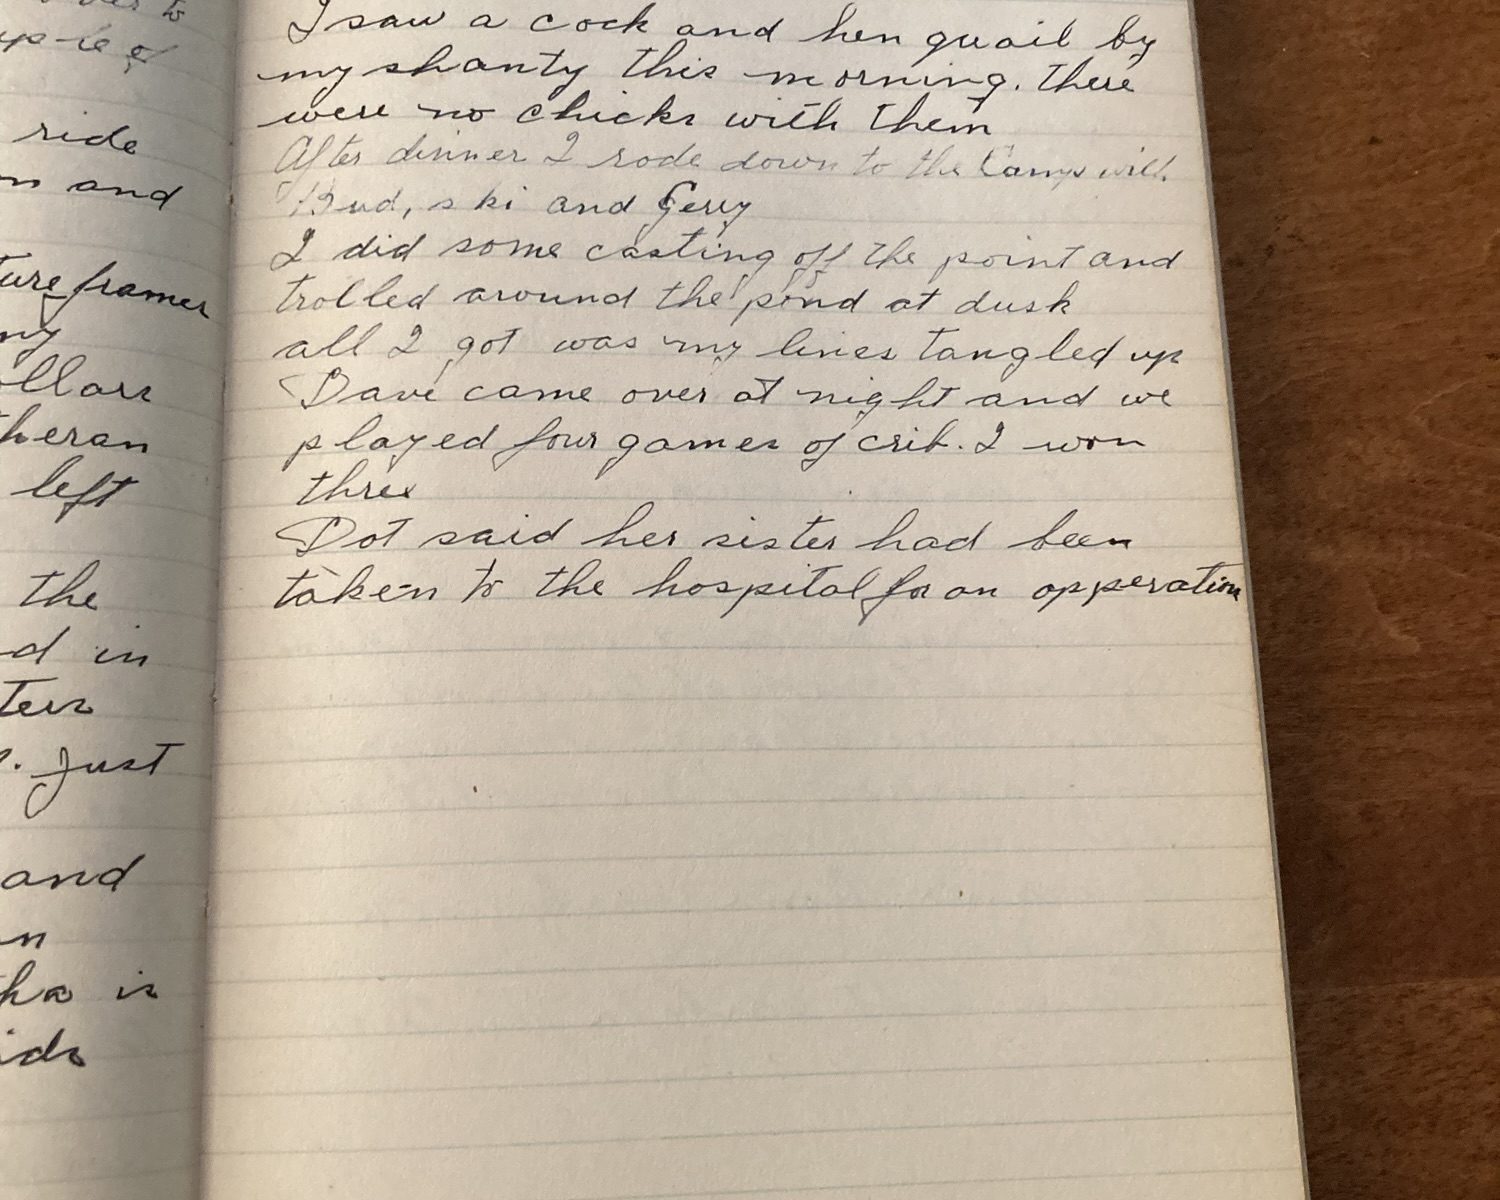 ride
and
ture framer
my
left
the
in
Just
and
is
I saw a cock and hen quail by
my shanty this morning. There
were no chicks with them
After dinner I rode down to the Camp with
Bud, ski and Gerry
I did some casting off the point and
trolled around the pond at dusk
all I got was my lines tangled up
Dave came over at night and we
played four games of crib. I won
three
Dot said her sister had been
taken to the hospital for an opperation